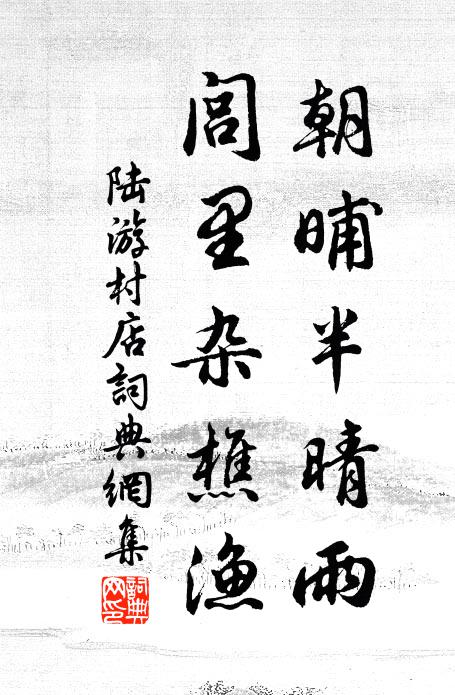 朝晡半晴雨
闾里杂樵渔
陆游村店詞典網集
詞典网印